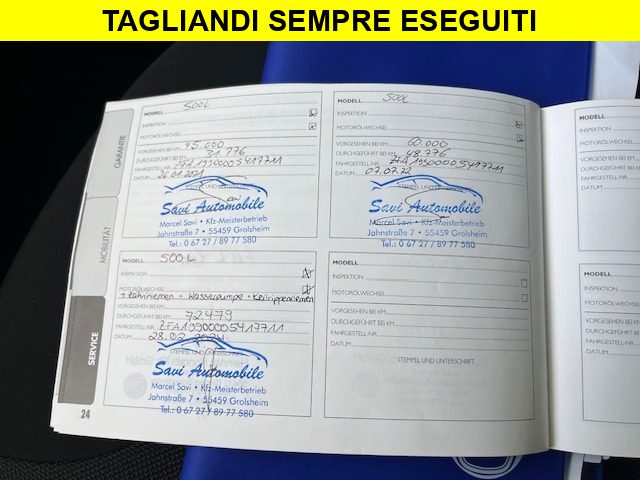 TAGLIANDI SEMPRE ESEGUITI
GARANTIE
MOBILITÄT
SERVICE
24
MODELL 500L
INSPEKTION
MOTORÖLWECHSEL
VORGESEHEN BEI KM 45.000
DURCHGEFÜHRT BEI KM 31.776
FAHRGESTELL-NR. ZFA19900005417711
DATUM 26.01.2021
STEMPEL UND UNTERSCHRIFT
Savi Automobile
Marcel Savi • Kfz-Meisterbetrieb
Jahnstraße 7 • 55459 Grolsheim
Tel.: 0 67 27 / 89 77 580
MODELL 500L
INSPEKTION
MOTORÖLWECHSEL
VORGESEHEN BEI KM 60.000
DURCHGEFÜHRT BEI KM 48.776
FAHRGESTELL-NR. ZFA19900005417711
DATUM 07.07.22
STEMPEL UND UNTERSCHRIFT
Savi Automobile
Marcel Savi • Kfz-Meisterbetrieb
Jahnstraße 7 • 55459 Grolsheim
Tel.: 0 67 27 / 89 77 580
MODELL 500L
INSPEKTION
MOTORÖLWECHSEL
+ Zahnriemen + Wasserpumpe + Keilrippenriemen
VORGESEHEN BEI KM
DURCHGEFÜHRT BEI KM 72479
FAHRGESTELL-NR. ZFA19900005417711
DATUM 28.05.2024
STEMPEL UND UNTERSCHRIFT
Savi Automobile
Marcel Savi • Kfz-Meisterbetrieb
Jahnstraße 7 • 55459 Grolsheim
Tel.: 0 67 27 / 89 77 580
MODELL
INSPEKTION
MOTORÖLWECHSEL
VORGESEHEN BEI KM
DURCHGEFÜHRT BEI KM
FAHRGESTELL-NR.
DATUM
STEMPEL UND UNTERSCHRIFT
MODELL
INSPEKTION
MOTORÖLWECHSEL
VORGESEHEN BEI
DURCHGEFÜHRT
FAHRGESTELL-N
DATUM
MODELL
INSPEKTION
MOTORÖLWE
VORGESEHEN
DURCHGEFÜ
FAHRGESTELL
DATUM